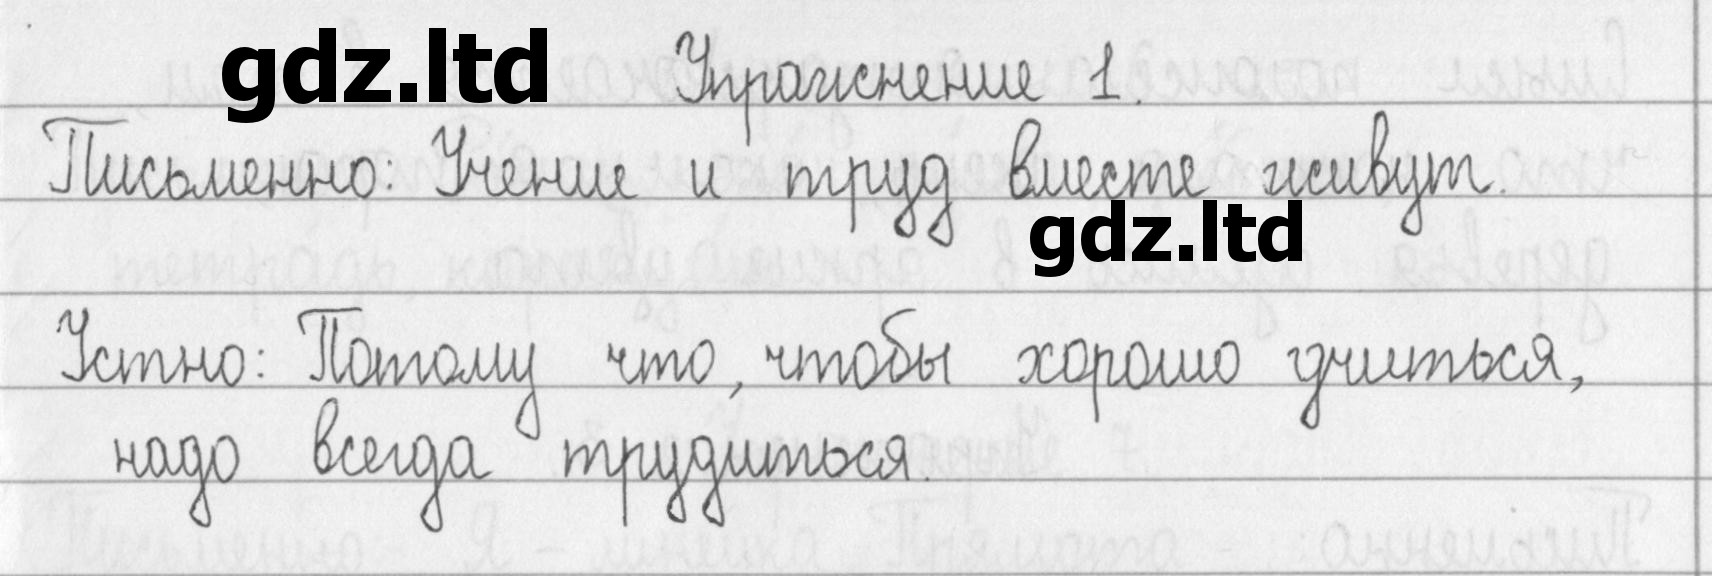 gdz.ltd Упражнение 1.
Письменно: Учение и труд вместе живут.
gdz.ltd
Устно: Потому что, чтобы хорошо учиться,
надо всегда трудиться.